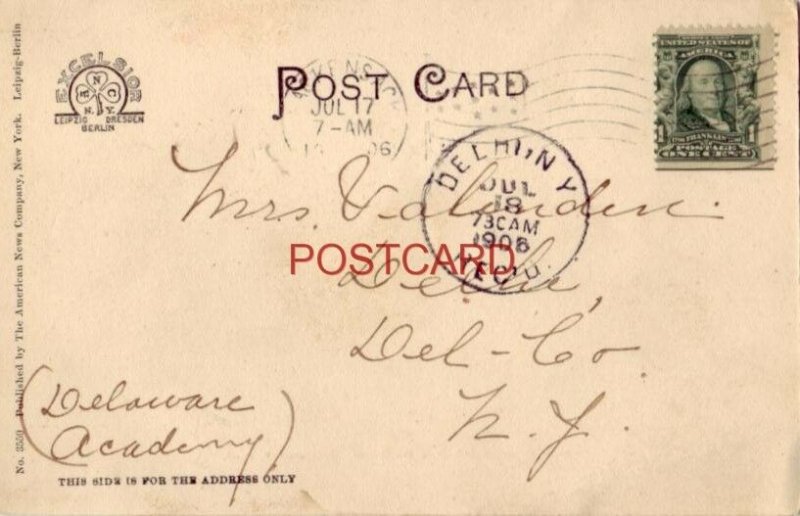 No. 3550 Published by The American News Company, New York. Leipzig-Berlin
EXCELSIOR
N
N.Y.
LEIPZIG DRESDEN
BERLIN
POST CARD
JUL 17
7-AM
06
UNITED STATES OF AMERICA
FRANKLIN
POSTAGE
1 ONE CENT 1
DELHI, N Y
JUL
18
730AM
1906
REC'D.
Mrs.
POSTCARD
Delhi,
Del-Co.
N. Y.
(Delaware
Academy)
THIS SIDE IS FOR THE ADDRESS ONLY